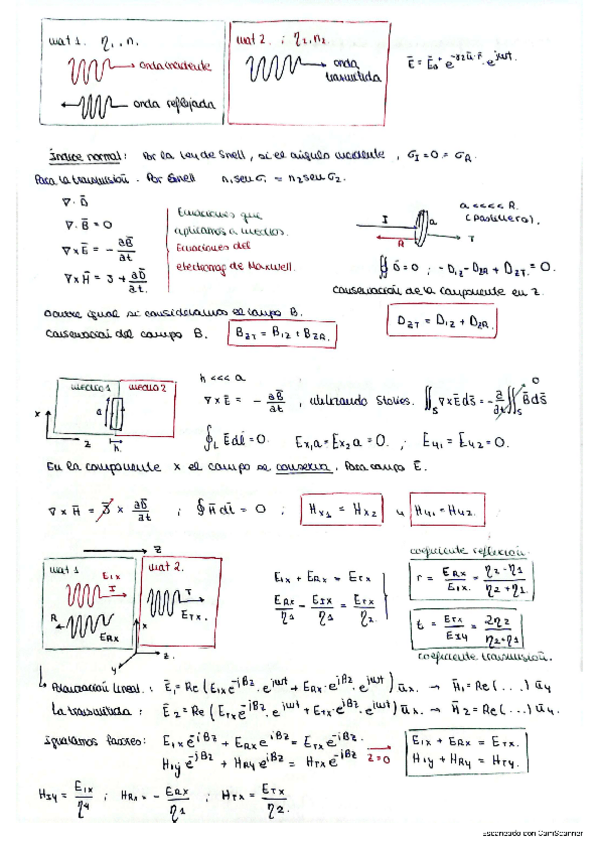 mat 1. η1, n.
mat 2. ; η2, n2
Ē = Ē0⁺ e^-γ2 ū·r̄ · e^jωt.
onda incidente
onda transmitida
onda reflejada
Índice normal: Por la Ley de Snell, si el ángulo incidente, σI = 0 = σR.
Para la transmisión. Por Snell n1 sen σ1 = n2 sen σ2.
∇·D̄
∇·B̄ = 0
∇×Ē = -∂B̄/∂t
∇×H̄ = J + ∂D̄/∂t.
Ecuaciones que
aplicamos a medios.
Ecuaciones del
electromag de Maxwell.
a <<<< R.
(Pastillero).
I
a
R
T
∯ D̄ = 0 ; -D1z - D2R + D2T = 0.
conservación de la componente en z.
Ocurre igual si consideramos el campo B.
Conservación del campo B. B2T = B1z + B2R.
D2T = D1z + D2R.
medio 1 medio 2
a
x
z
h.
h <<< a
∇×Ē = -∂B̄/∂t, utilizando Stokes. ∬S ∇×Ē ds̄ = -∂/∂t ∬S B̄ ds̄ 0
∮L Ē dl̄ = 0. Ex1 a = Ex2 a = 0. ; Ey1 = Ey2 = 0.
En la componente x el campo se conserva. Para campo E.
∇×H̄ = J × ∂D̄/∂t ; ∮ H̄ dl̄ = 0 ; Hx1 = Hx2 y Hy1 = Hy2.
z
mat 1
mat 2.
EIx
I
R
ERx
T
ETx.
x
y
z.
EIx + ERx = ETx
ERx/η1 - EIx/η1 = ETx/η2.
coeficiente reflexión.
r = ERx/EIx. = η2-η1/η2+η1.
t = ETx/EIy = 2η2/η2+η1
coeficiente transmisión.
Polarización lineal.: Ē1 = Re(EIx e^-jβz · e^jωt + ERx · e^jβz · e^jωt) ūx. → H̄1 = Re(...) ūy
La transmitida: Ē2 = Re(ETx e^-jβz · e^jωt + ETx · e^jβz · e^jωt) ūx. → H̄2 = Re(...) ūy.
Igualamos fasores: EIx e^-jβz + ERx e^jβz = ETx e^-jβz
HIy e^-jβz + HRy e^jβz = HTx e^-jβz z=0
EIx + ERx = ETx.
HIy + HRy = HTy.
HIy = EIx/η1 ; HRx - ERx/η1 ; HTx = ETx/η2.
Escaneado con CamScanner